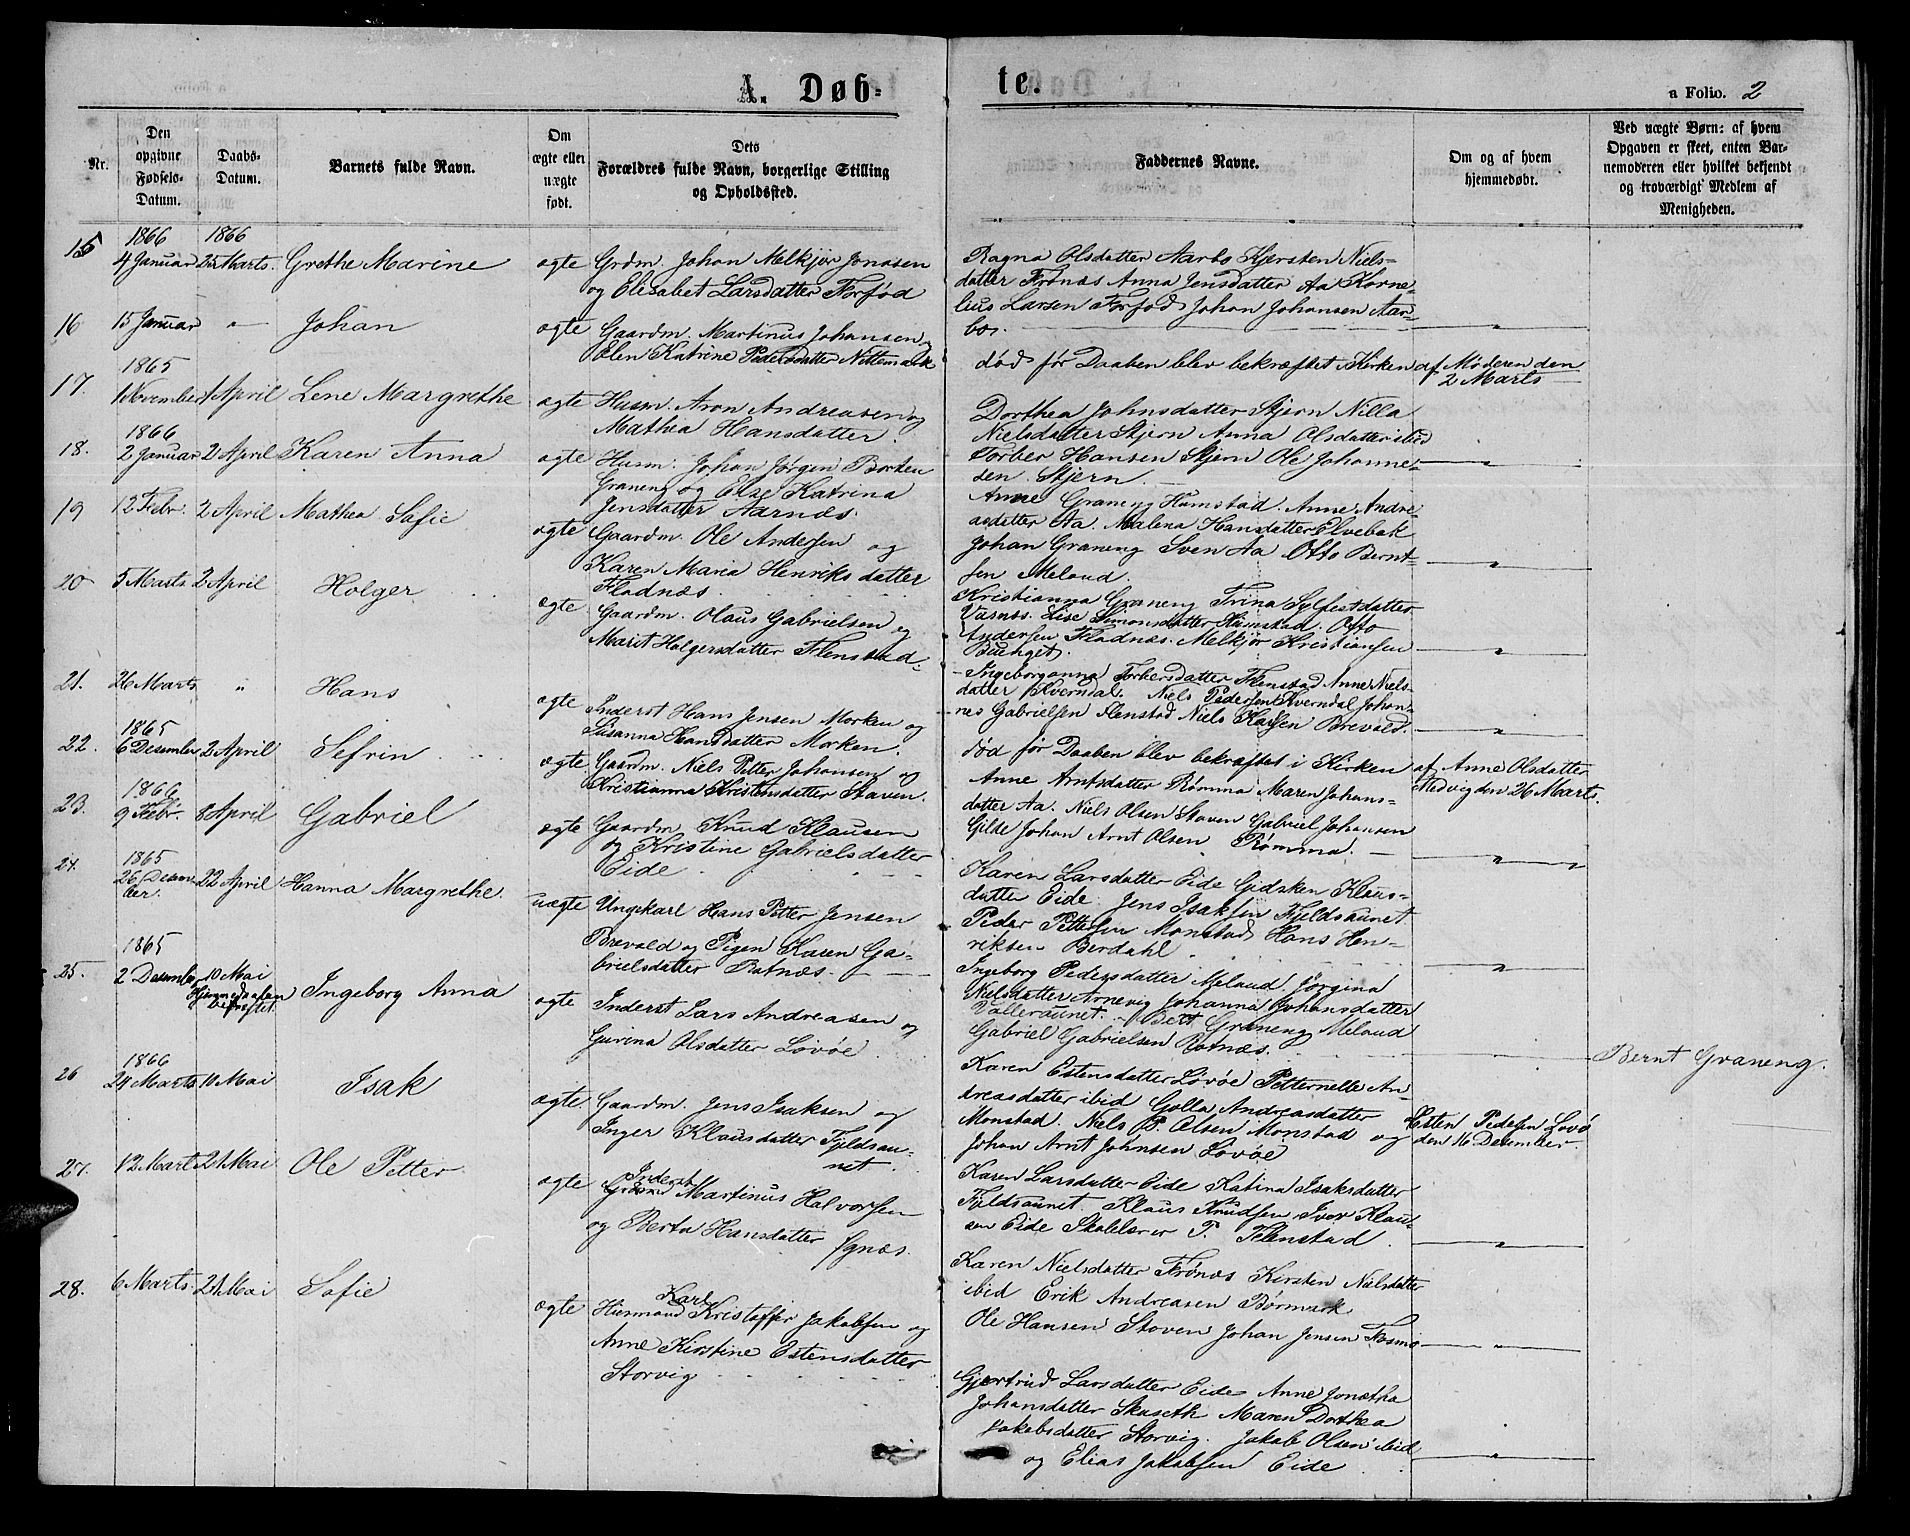 A. Døb-
te.
a Folio. 2
Nr.
Den
opgivne
Fødsels-
Datum.
Daabs-
Datum.
Barnets fulde Navn.
Om
ægte eller
uægte
født.
Dets
Forældres fulde Navn, borgerlige Stilling
og Opholdssted.
Faddernes Navne.
Om og af hvem
hjemmedøbt.
Ved uægte Børn: af hvem
Opgaven er skeet, enten Bar-
nemoderen eller hvilket bekjendt
og troværdigt Medlem af
Menigheden.
15
1866
4 Januar
1866
25 Marts.
Grethe Marine
ægte
Grdm. Johan Melkjør Jonasen
og Elisabet Larsdatter Forfød
Ragna Olsdatter Aarbo Kjersten Niels-
datter Frønæs Anna Jensdatter Aa Korne-
lius Larsen Forfød Johan Johansen Aar-
bo.
16
15 Januar
"
Johan
ægte
Gaardm. Martinus Johansen og
Elen Katrine Pedersdatter Nittemark
død før Daaben blev bekræftet i Kirken
af Moderen den
2 Marts
17.
1865
1 November
1 April
Lene Margrethe
ægte
Husm. Aron Andreasen og
Mathea Hansdatter.
Dorthea Johnsdatter Stjern Nilla
Nielsdatter Stjern Anna Olsdatter ibid
Torber Hansen Stjern Ole Johanne-
sen Stjern.
18.
1866
2 Januar
2 April
Karen Anna
ægte
Husm. Johan Jørgen Borten
Graneng og Else Katrina
Jensdatter Aarnæs.
Anne Graneng Humstad. Anne Andre-
asdatter Aa. Malena Hansdatter Elvebak
Johan Graneng Sven Aa Otto Bernt-
sen Meland.
19
12 Febr.
2 April
Mathea Sofie
ægte
Gaardm. Ole Andersen og
Karen Maria Henriksdatter
Fladnæs.
Kristianna Graneng Trina Sylfestdatter
Vasnæs. Lise Simonsdatter Humstad. Otto
Andersen Fladnæs. Melkjør Kristiansen
20
5 Marts
2 April
Holger
ægte
Gaardm. Olaus Gabrielsen og
Marit Holgersdatter Flenstad.
Ingeborganna Torbersdatter Flenstad Anne Niels-
datter Kverndal. Niels Pedersen Kverndal Johan-
nes Gabrielsen Flenstad Niels Karlsen Brevold.
21.
26 Marts
"
Hans
ægte
Inderst Hans Jensen Morken og
Susanna Hansdatter Morken.
død før Daaben blev bekræftet i Kirken
af Anne Olsdatter
Medvig den 26 Marts.
22.
1865
6 Desember
2 April
Sefrin
ægte
Gaardm. Niels Petter Johansen og
Kristianna Kristensdatter Staven.
Anne Arntsdatter Rømma Maren Johans-
datter Aa. Niels Olsen Staven Gabriel Johansen
Gilde Johan Arnt Olsen Rømma.
23.
1866
9 Febr.
8 April
Gabriel
ægte
Gaardm. Knud Klausen
og Kristine Gabrielsdatter
Eide
Karen Larsdatter Eide Gidsken Klaus-
datter Eide. Jens Isaksen Fjeldsaunet
Peder Pettersen Monstad Hans Hen-
riksen Berdahl
24.
1865
26 Desem-
ber.
22 April
Hanna Margrethe.
uægte
Ungekarl Hans Petter Jensen
Brevold og Pigen Karen Ga-
brielsdatter Botnæs.
Ingeborg Pedersdatter Meland. Jørgina
Nielsdatter Arnevig Johanna Johansdatter
Valleraunet. Bert Graneng Meland
Gabriel Gabrielsen Botnæs.
Bernt Graneng.
25.
1865
2 Desember
10 Mai
Hjemmedaaben
bekræftet.
Ingeborg Anna
ægte
Inderst Lars Andreasen og
Gurina Olsdatter Lovøe
Karen Estensdatter Lovøe Petternelle An-
dreasdatter ibid Golla Andreasdatter
Monstad. Niels P. Olsen Monstad og
Johan Arnt Johnsen Lovøe
Esten Pedersen Lovø
den 16 Desember.
26
1866
24 Marts
10 Mai
Isak
ægte.
Gaardm. Jens Isaksen og
Inger Klausdatter Fjeldsau-
net.
Karen Larsdatter Eide Katrina Isaksdatter
Fjeldsaunet. Klaus Knudsen, Iver Klau-
sen Eide Skolelærer P. Flenstad.
27.
12 Marts
21 Mai
Ole Petter
ægte
Inderst
Martinus Halvorsen
og Berta Hansdatter Ygnæs.
Karen Nielsdatter Frønæs Kirsten Nielsdatter
ibid Erik Andreasen Børmark
Ole Hansen Stoven Johan Jensen Fosmo
28.
6 Marts.
21 Mai
Sofie
ægte
Karl
Husmand Kristoffer Jakobsen og
Anne Kirstine Estensdatter
Storvig
Gjertrud Larsdatter Eide Anne Jonetha
Johansdatter Skaseth Maren Dorthea
Jakobsdatter Storvig. Jakob Olsen ibid
og Elias Jakobsen Eide